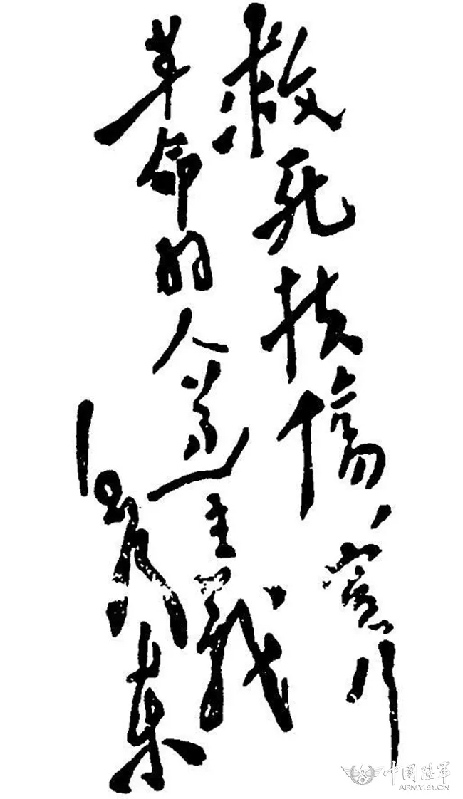 救死扶伤，实行
革命的人道主义
毛泽东
中国陆军
ARMY.81.CN